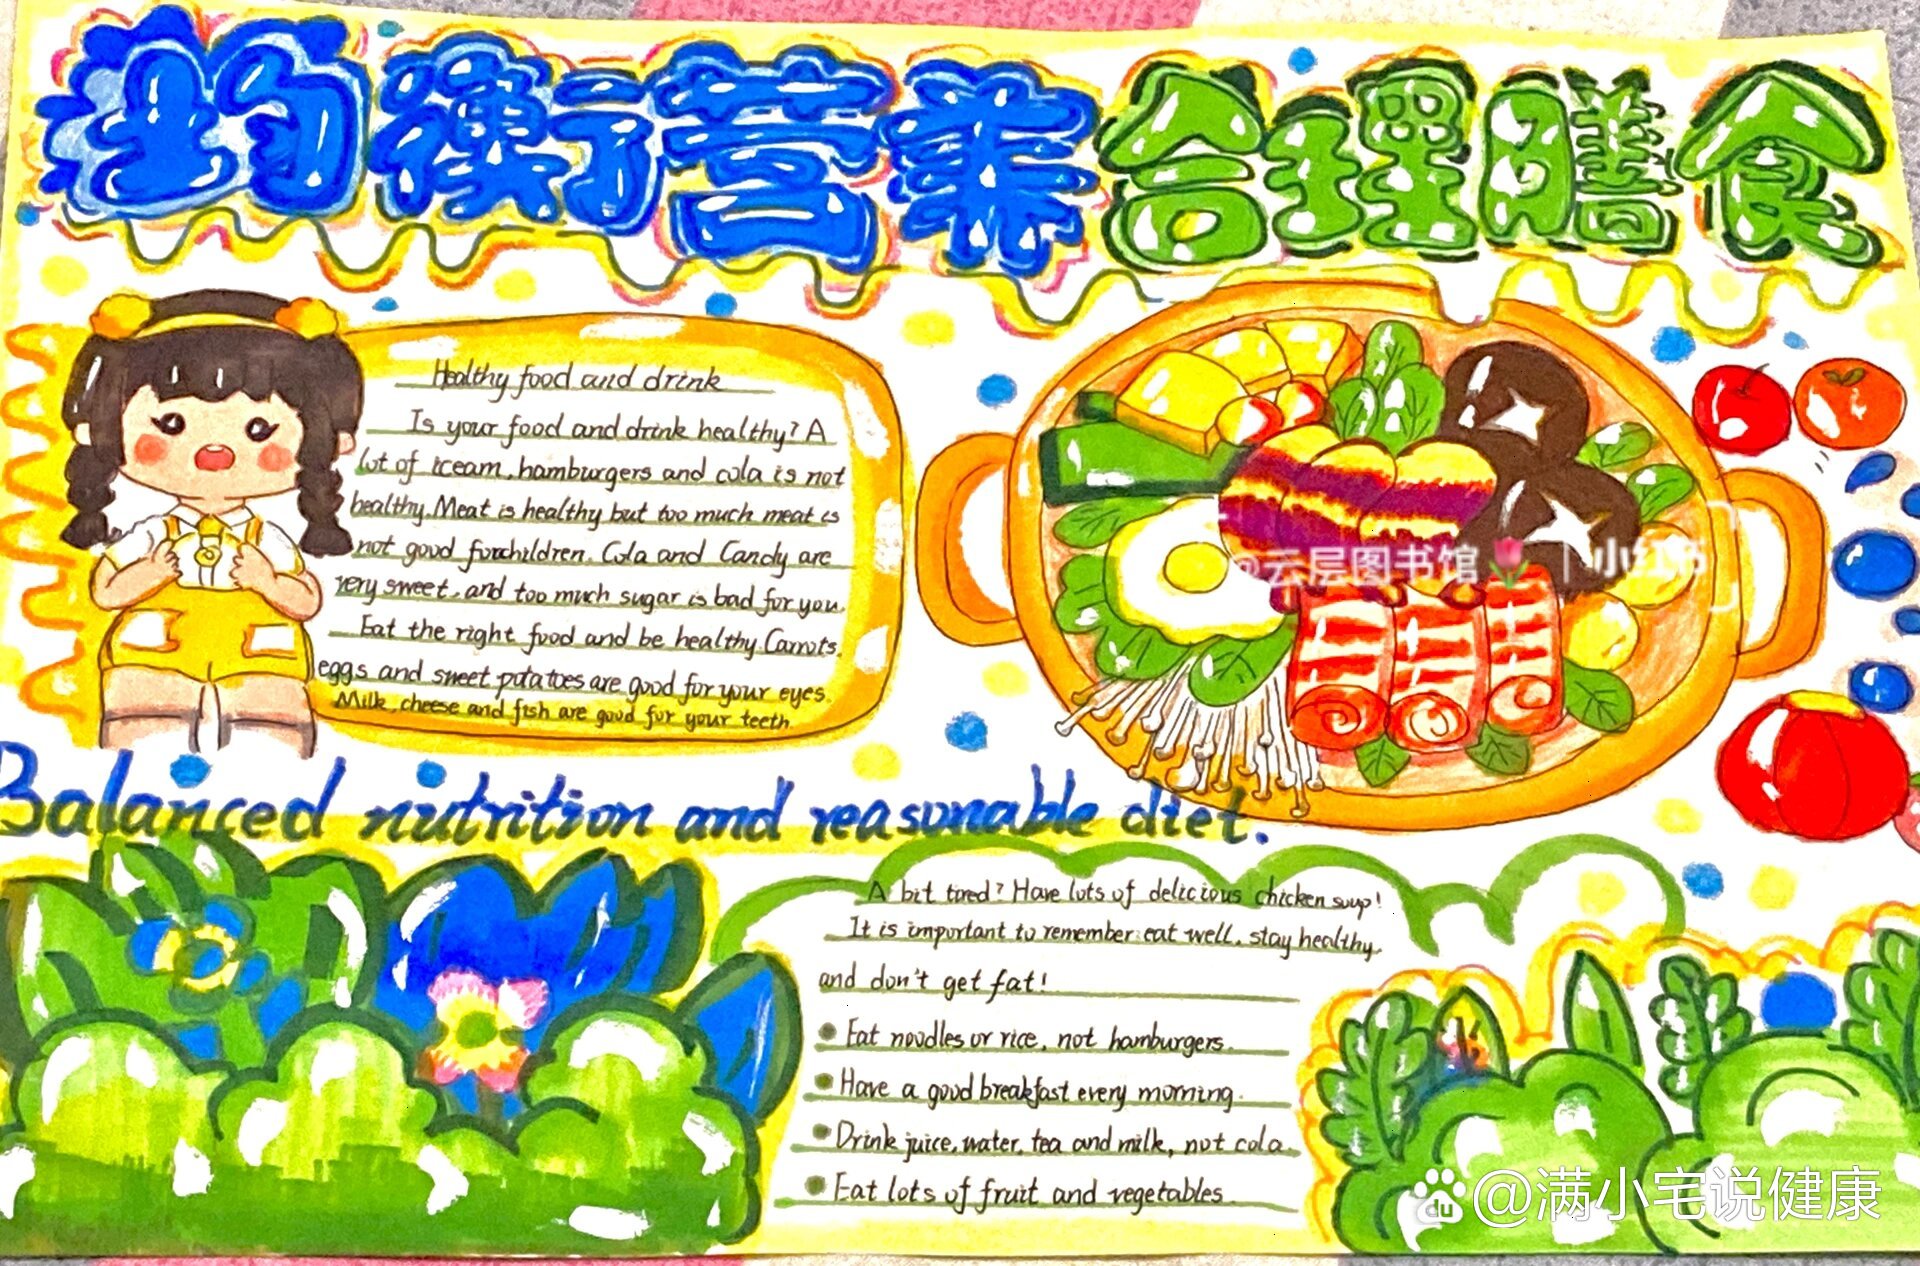 均衡营养 合理膳食
Healthy food and drink
Is your food and drink healthy? A
lot of iceam, hamburgers and cola is not
healthy. Meat is healthy but too much meat is
not good forchildren. Cola and Candy are
very sweet, and too much sugar is bad for you.
Eat the right food and be healthy Carrots,
eggs and sweet potatoes are good for your eyes.
Milk, cheese and fish are good for your teeth.
@云层图书馆🌷 | 小红书
Balanced nutrition and reasonable diet.
A bit tired? Have lots of delicious chicken soup!
It is important to remember: eat well, stay healthy,
and don't get fat!
● Eat noodles or rice, not hamburgers.
● Have a good breakfast every morning.
● Drink juice, water, tea and milk, not cola.
● Eat lots of fruit and vegetables.
du @满小宅说健康